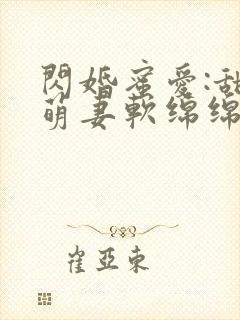 閃婚蜜愛:甜
萌妻軟綿綿
崔亞東